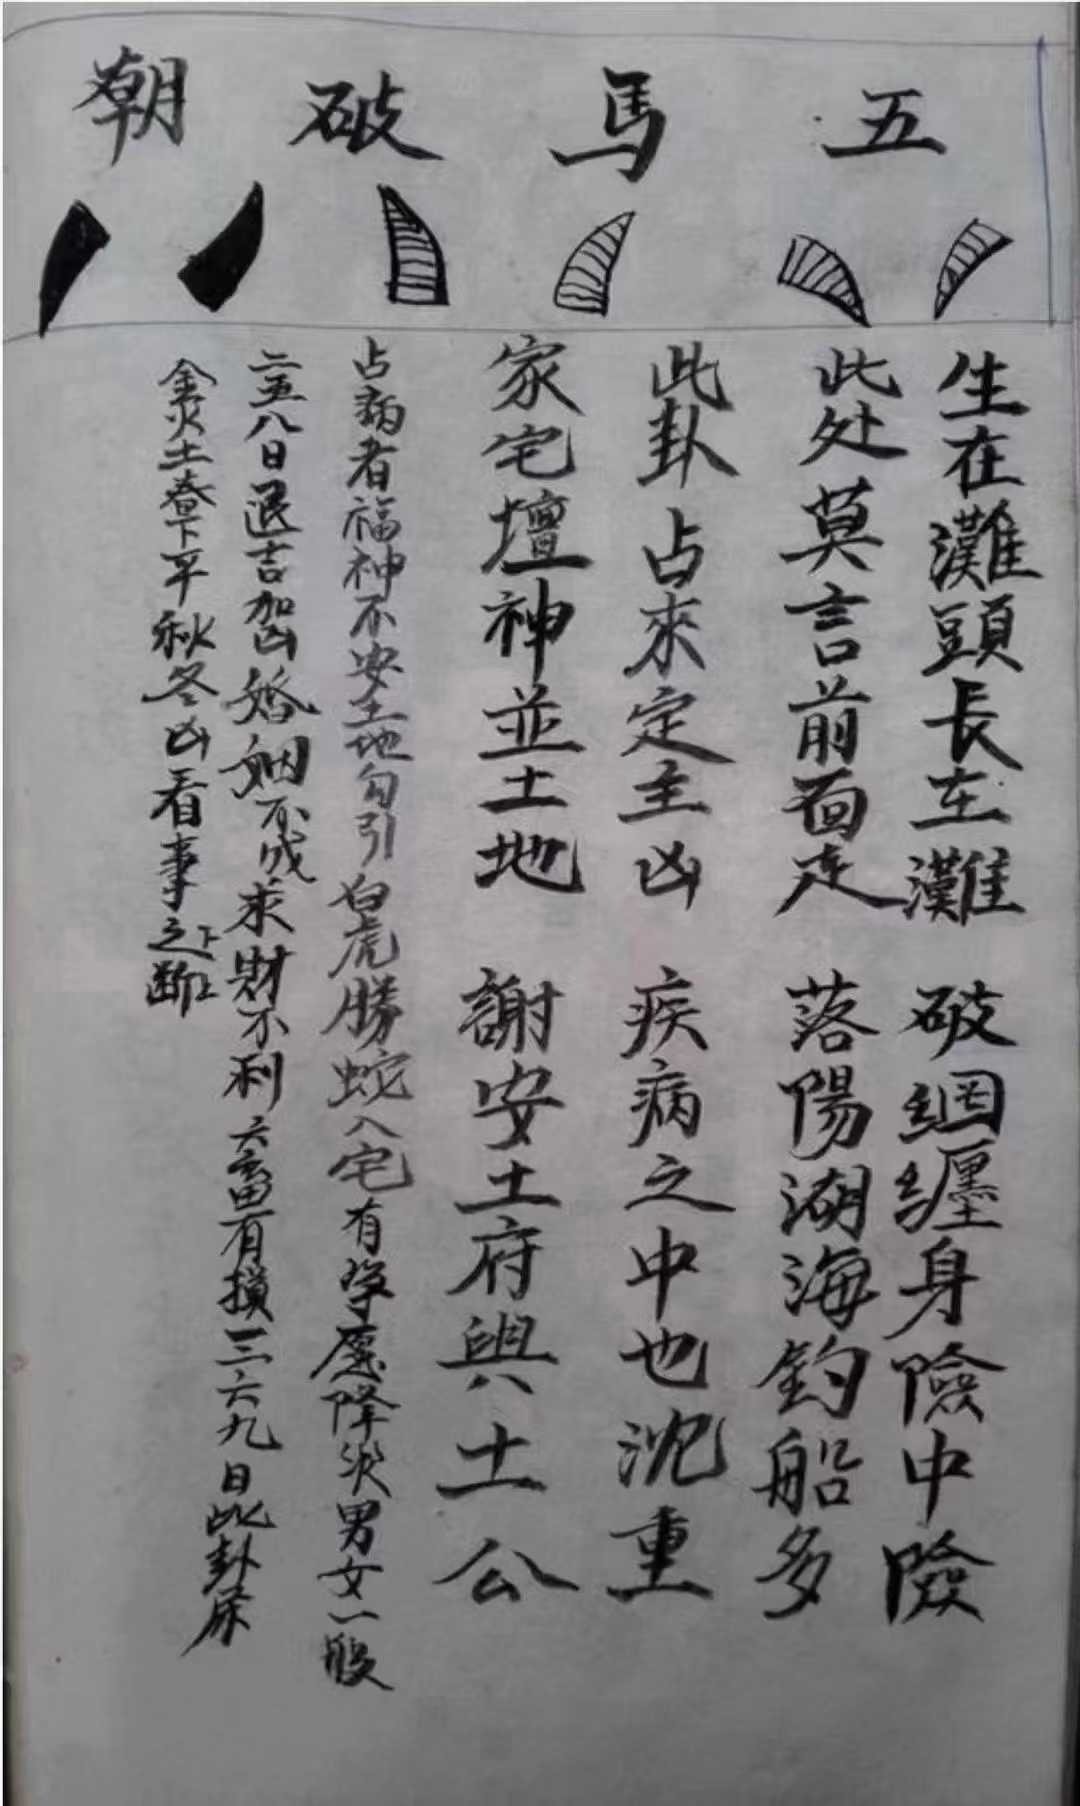 五馬破朝
生在灘頭長在灘 破網纏身險中險
此处莫言前面走 落陽湖海釣船多
此卦占來定主凶 疾病之中也沈重
家宅壇神並土地 謝安土府與土公
占病者福神不安土地勾引白虎腾蛇入宅有孕愿降災男女一般
二五八日退吉加凶婚姻不成求財不利六畜有損三六九日此卦属
金火土春下平秋冬凶看事之上下断